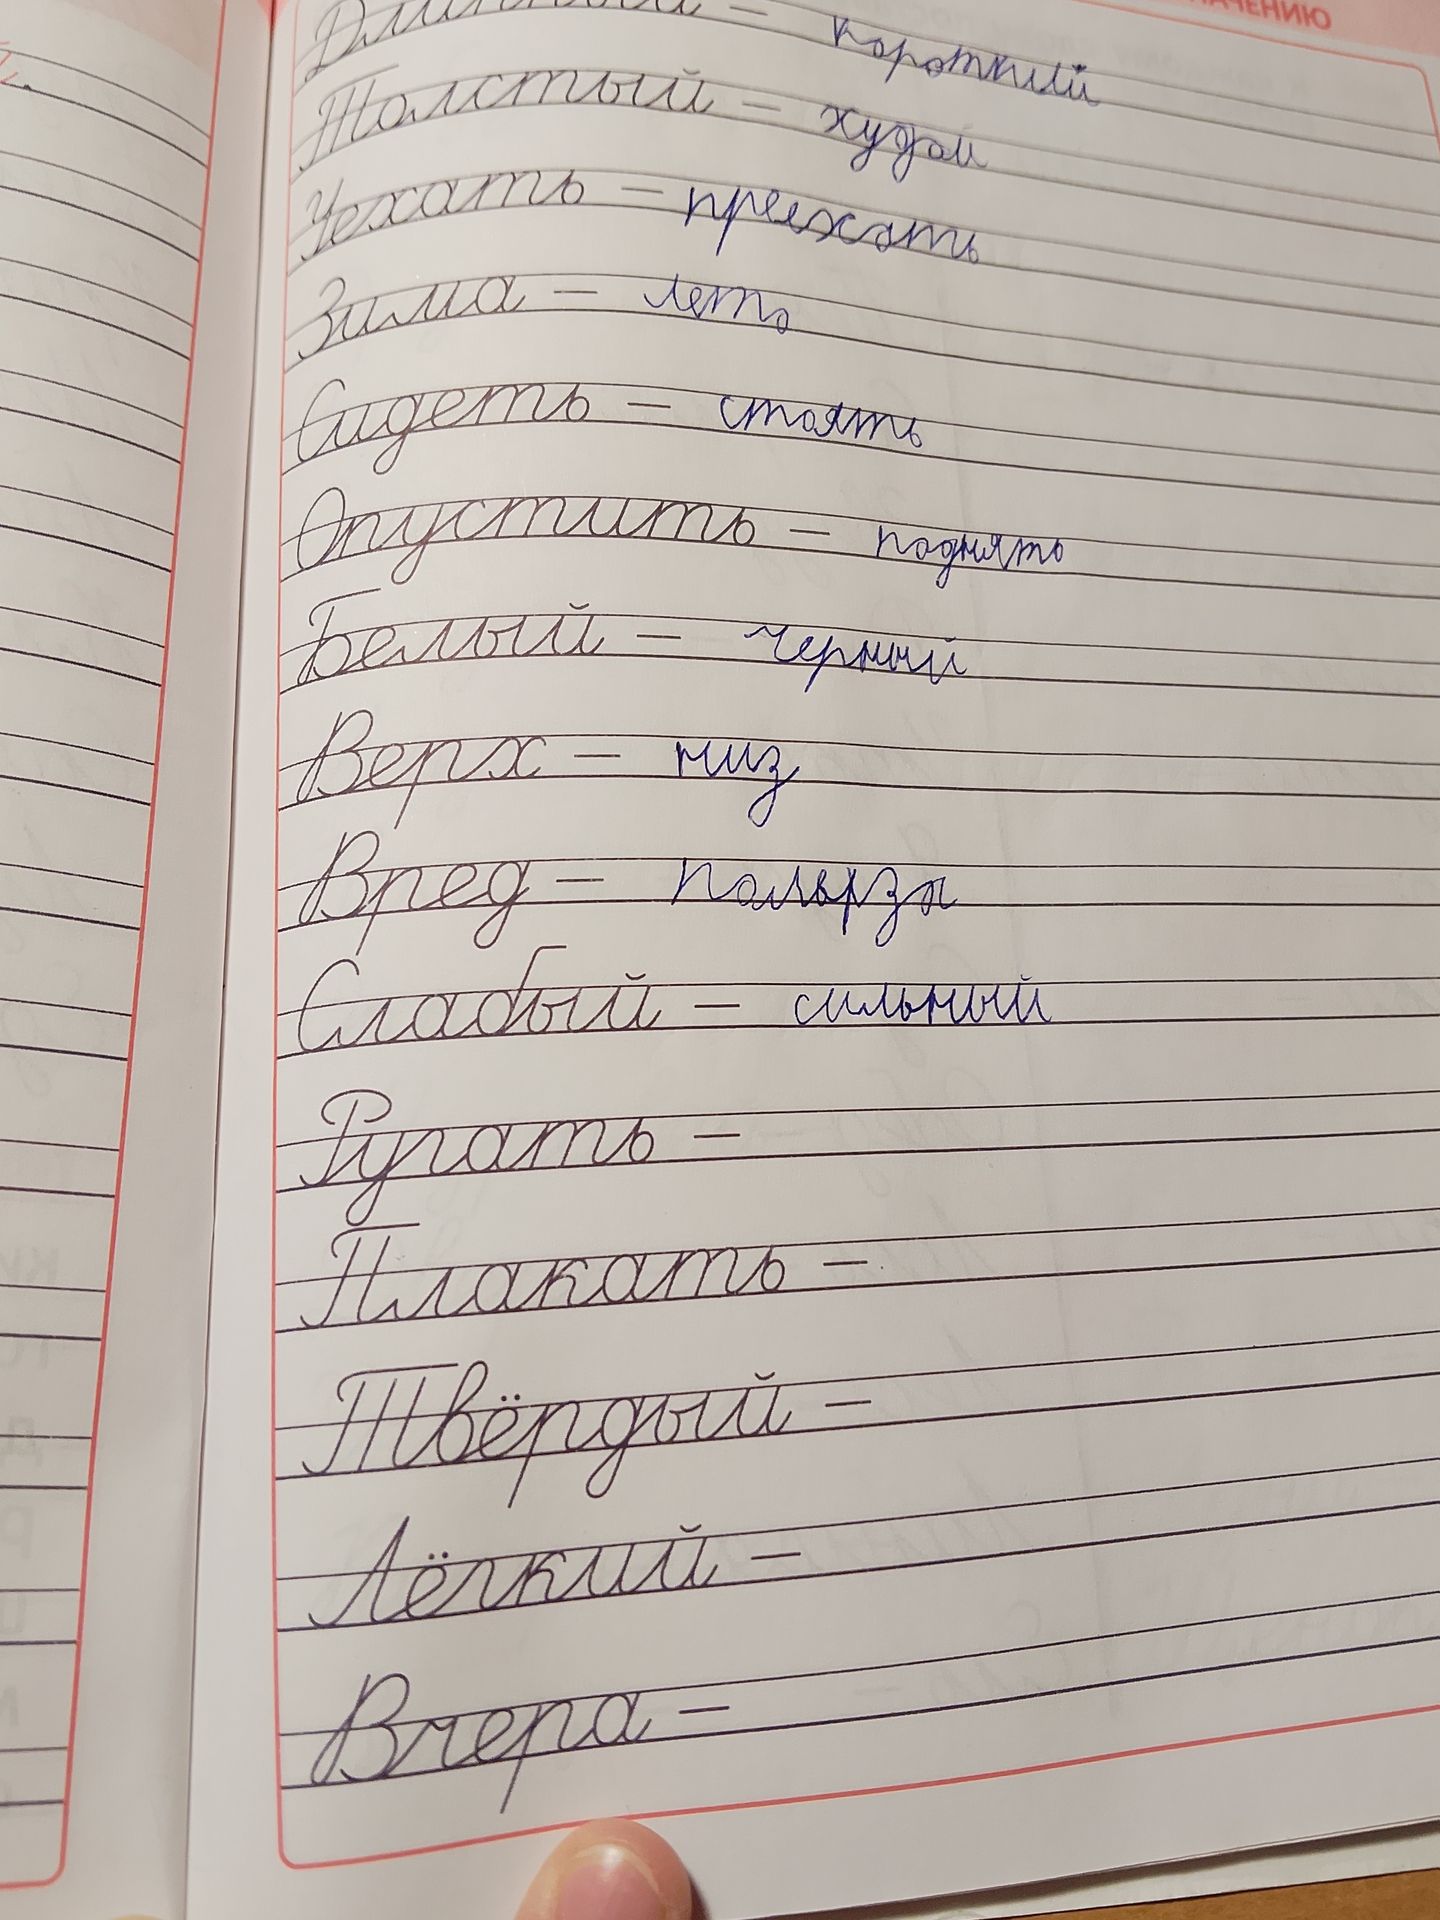 ЗНАЧЕНИЮ
Длинный – короткий
Толстый – худой
Уехать – преехать
Зима – лето
Сидеть – стоять
Опустить – поднять
Белый – черный
Верх – низ
Вред –
Слабый – сильный
Ругать –
Плакать –
Твёрдый –
Лёгкий –
Вчера –